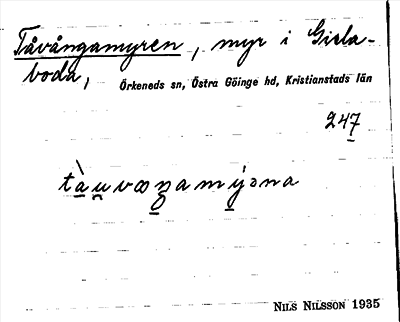 Tåvångamyren, myr i Gisla-
boda, Örkeneds sn, Östra Göinge hd, Kristianstads län
247
NILS NILSSON 1935